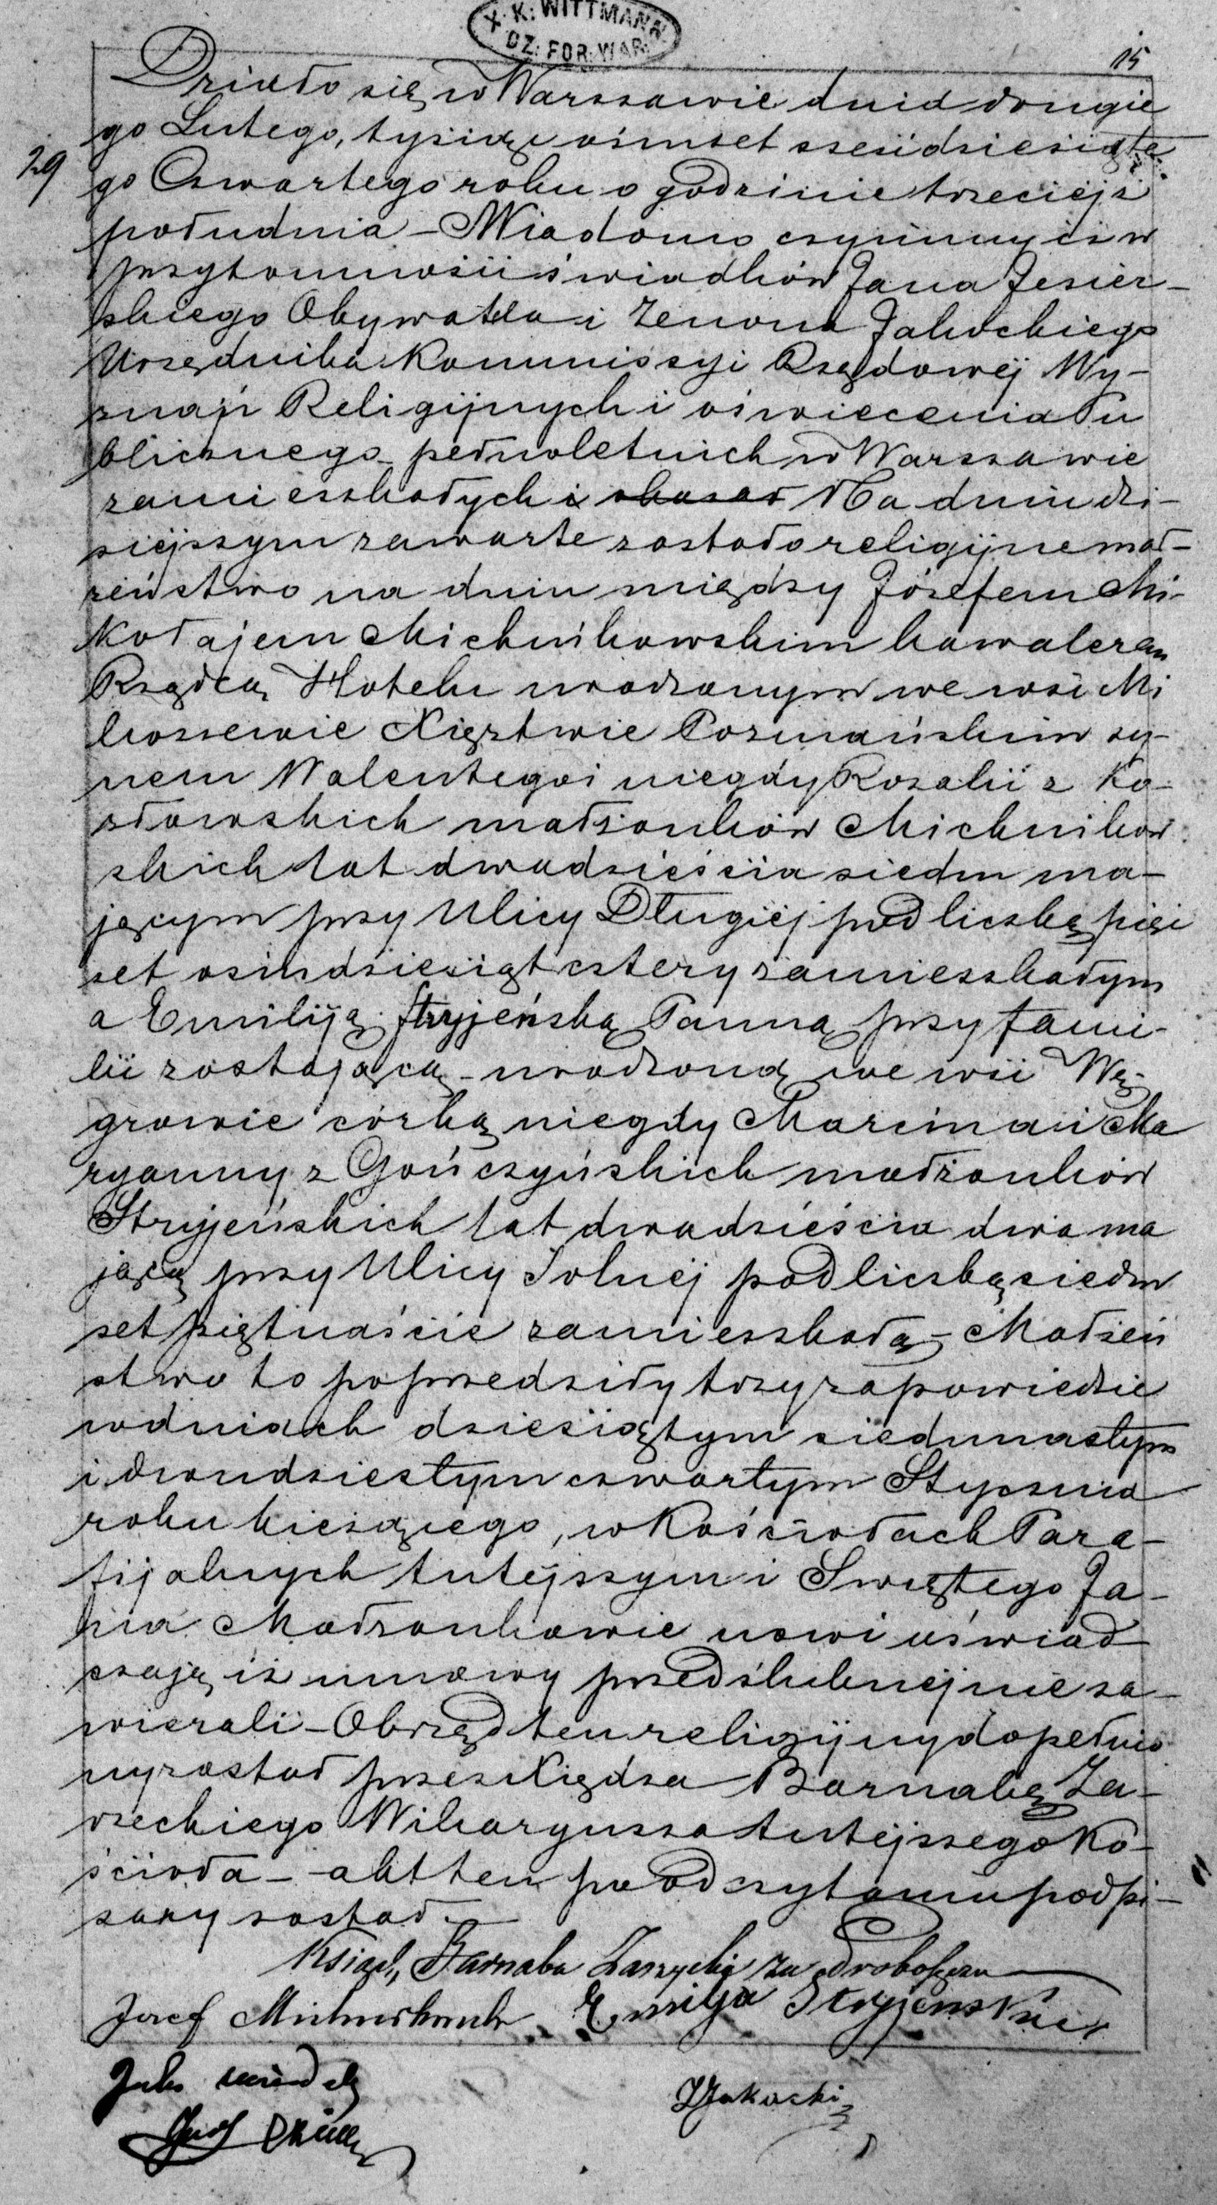 X. K. WITTMANN
DZ. FOR. WAR.
15
29
Działo się w Warszawie dnia drugie
go Lutego, tysiąc ośmset sześćdziesiąte
go Czwartego roku o godzinie trzeciej z
południa – Wiadomo czyniemy iż w
przytomności świadków Jana Jesier-
skiego Obywatela i Zenona Jakockiego
Urzędnika Kommissyi Rządowej Wy-
znań Religijnych i oświecenia Pu
blicznego pełnoletnich w Warszawie
zamieszkałych i Na dniu dzi-
siejszym zawarte zostało religijne mał-
żeństwo na dniu między Józefem Mi-
kołajem Michnikowskim kawalerem
Rządcą Hotelu urodzonym we wsi Mi
łoszewie Xięztwie Poznańskim sy-
nem Walentego i niegdy Rozalii z Ko-
złowskich małżonków Michnikow
skich lat dwadzieścia siedm ma-
jącym przy Ulicy Długiej pod liczbą pięć
set osimdziesiąt cztery zamieszkałym
a Emiliją Stryjeńską Panną przy fami-
lii zostającą – urodzoną we wsi Wę-
growie córką niegdy Marcina i Ma
ryanny z Gończyńskich małżonków
Stryjeńskich lat dwadzieścia dwa ma
jącą przy Ulicy Solnej pod liczbą siedm
set piętnaście zamieszkałą – Małżeń
stwo to poprzedziły trzy zapowiedzie
w dniach dziesiątym siedmnastym
i dwudziestym czwartym Stycznia
roku bieżącego, w Kościołach Para-
fijalnych tutejszym i Świętego Ja-
na Małżonkowie nowi oświad
czają iż umowy przedślubnej nie za-
wierali – Obrząd ten religijny dopełnio
ny został przez Xiędza Barnabę Za-
rzeckiego Wikaryusza tutejszego Ko-
ścioła – akt ten po odczytaniu podpi-
sany został.
Ksiądz Barnaba Zarzycki za Proboszcza
Józef Michnikowski Emilja Stryjenska
Jako
Józef
ZJakocki